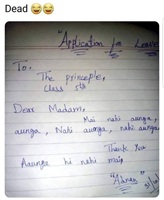 Dead 😂😂
"Application for Leave
To,
The principle,
Class 5th
Dear Madam,
Mai nahi aunga,
aunga, Nahi aunga, nahi aunga
Thank You
Aaunga hi nahi main
"Adnan"